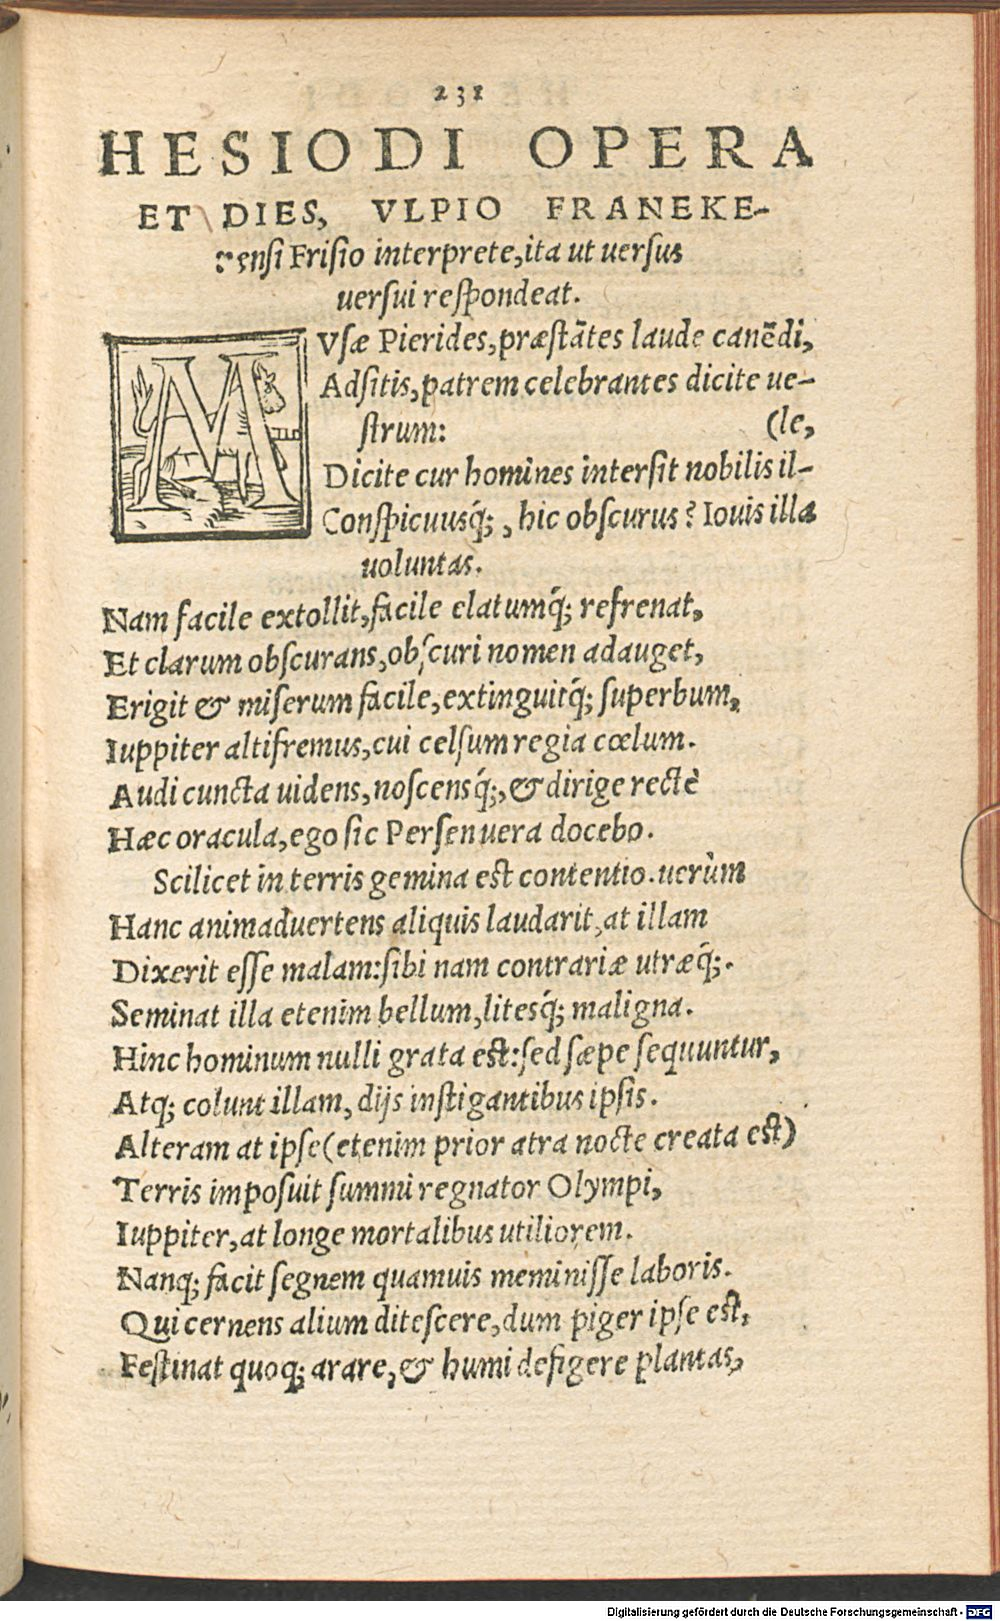 231
HESIODI OPERA
ET DIES, VLPIO FRANEKE-
rensi Frisio interprete, ita ut uersus
uersui respondeat.
MVsæ Pierides, præstātes laude canēdi,
Adsitis, patrem celebrantes dicite ue-
strum: (le,
Dicite cur homines intersit nobilis il-
Conspicuusq́;, hic obscurus? Iouis illa
uoluntas.
Nam facile extollit, facile elatumq́; refrenat,
Et clarum obscurans, obscuri nomen adauget,
Erigit & miserum facile, extinguitq́; superbum,
Iuppiter altifremus, cui celsum regia cœlum.
Audi cuncta uidens, noscensq́;, & dirige rectè
Hæc oracula, ego sic Persen uera docebo.
Scilicet in terris gemina est contentio. uerùm
Hanc animaduertens aliquis laudarit, at illam
Dixerit esse malam: sibi nam contrariæ utræq́;.
Seminat illa etenim bellum, litesq́; maligna.
Hinc hominum nulli grata est: sed sæpe sequuntur,
Atq; colunt illam, dijs instigantibus ipsis.
Alteram at ipse (etenim prior atra nocte creata est)
Terris imposuit summi regnator Olympi,
Iuppiter, at longe mortalibus utiliorem.
Nanq; facit segnem quamuis meminisse laboris.
Qui cernens alium ditescere, dum piger ipse est,
Festinat quoq; arare, & humi defigere plantas,
Digitalisierung gefördert durch die Deutsche Forschungsgemeinschaft - DFG